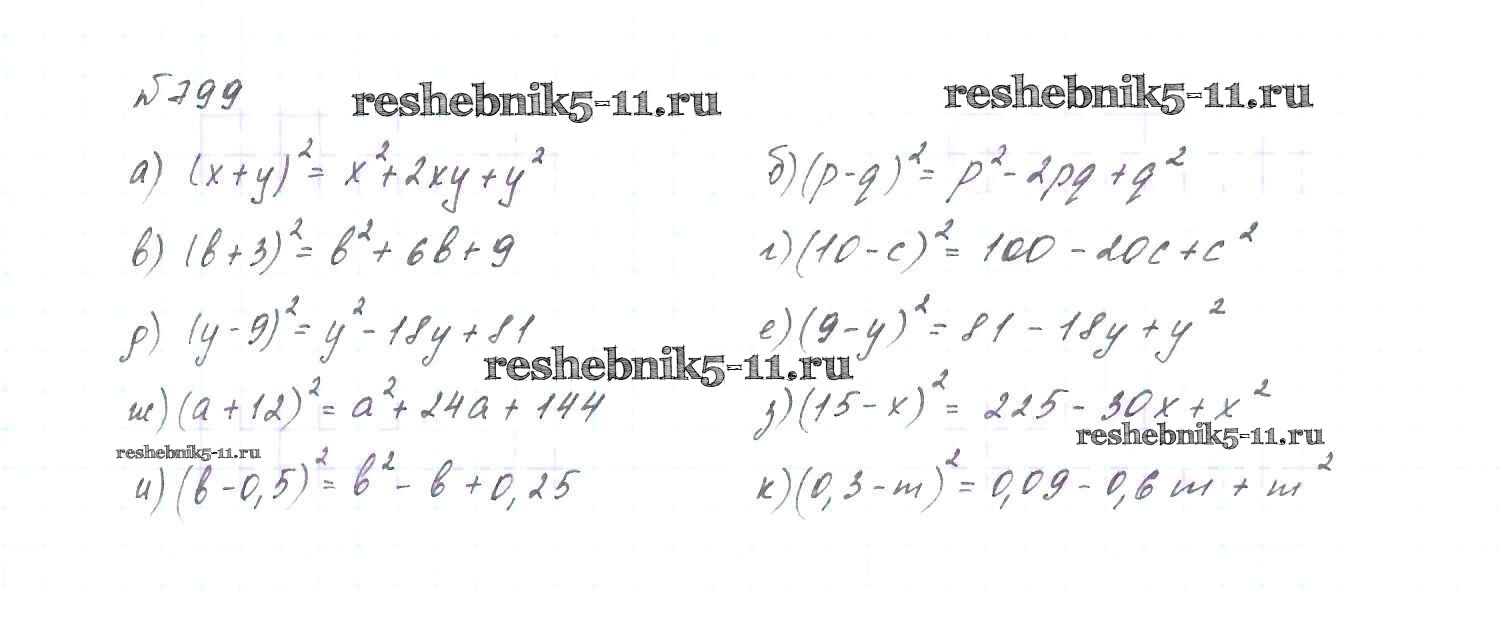 № 799
reshebnik5-11.ru reshebnik5-11.ru
а) (x+y)² = x² + 2xy + y² б) (p-q)² = p² - 2pq + q²
в) (b+3)² = b² + 6b + 9 г) (10-c)² = 100 - 20c + c²
д) (y-9)² = y² - 18y + 81 е) (9-y)² = 81 - 18y + y²
reshebnik5-11.ru
ж) (a+12)² = a² + 24a + 144 з) (15-x)² = 225 - 30x + x²
reshebnik5-11.ru reshebnik5-11.ru
и) (b-0,5)² = b² - b + 0,25 к) (0,3-m)² = 0,09 - 0,6m + m²